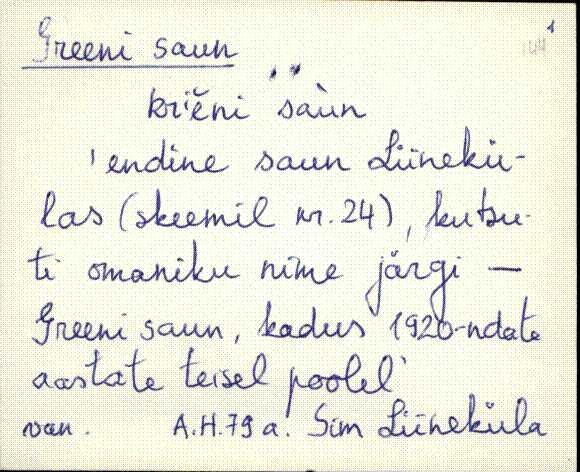 Greeni saun
kriěni sàun
'endine saun Liinekü-
las (skeemil nr. 24), kutsu-
ti omaniku nime järgi —
Greeni saun, kadus 1920-ndate
aastate teisel poolel'
van. A.H. 79 a. Sim Liineküla